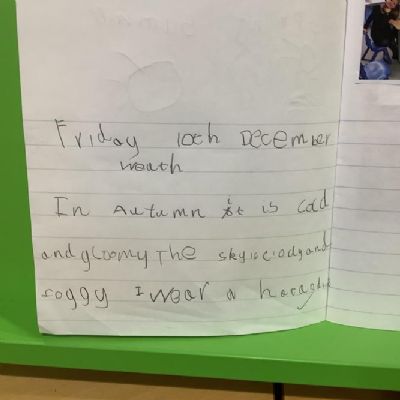 Friday 10th December
weath
In Autumn it is cod
and gloomy The sky is clody and
foggy I wear a